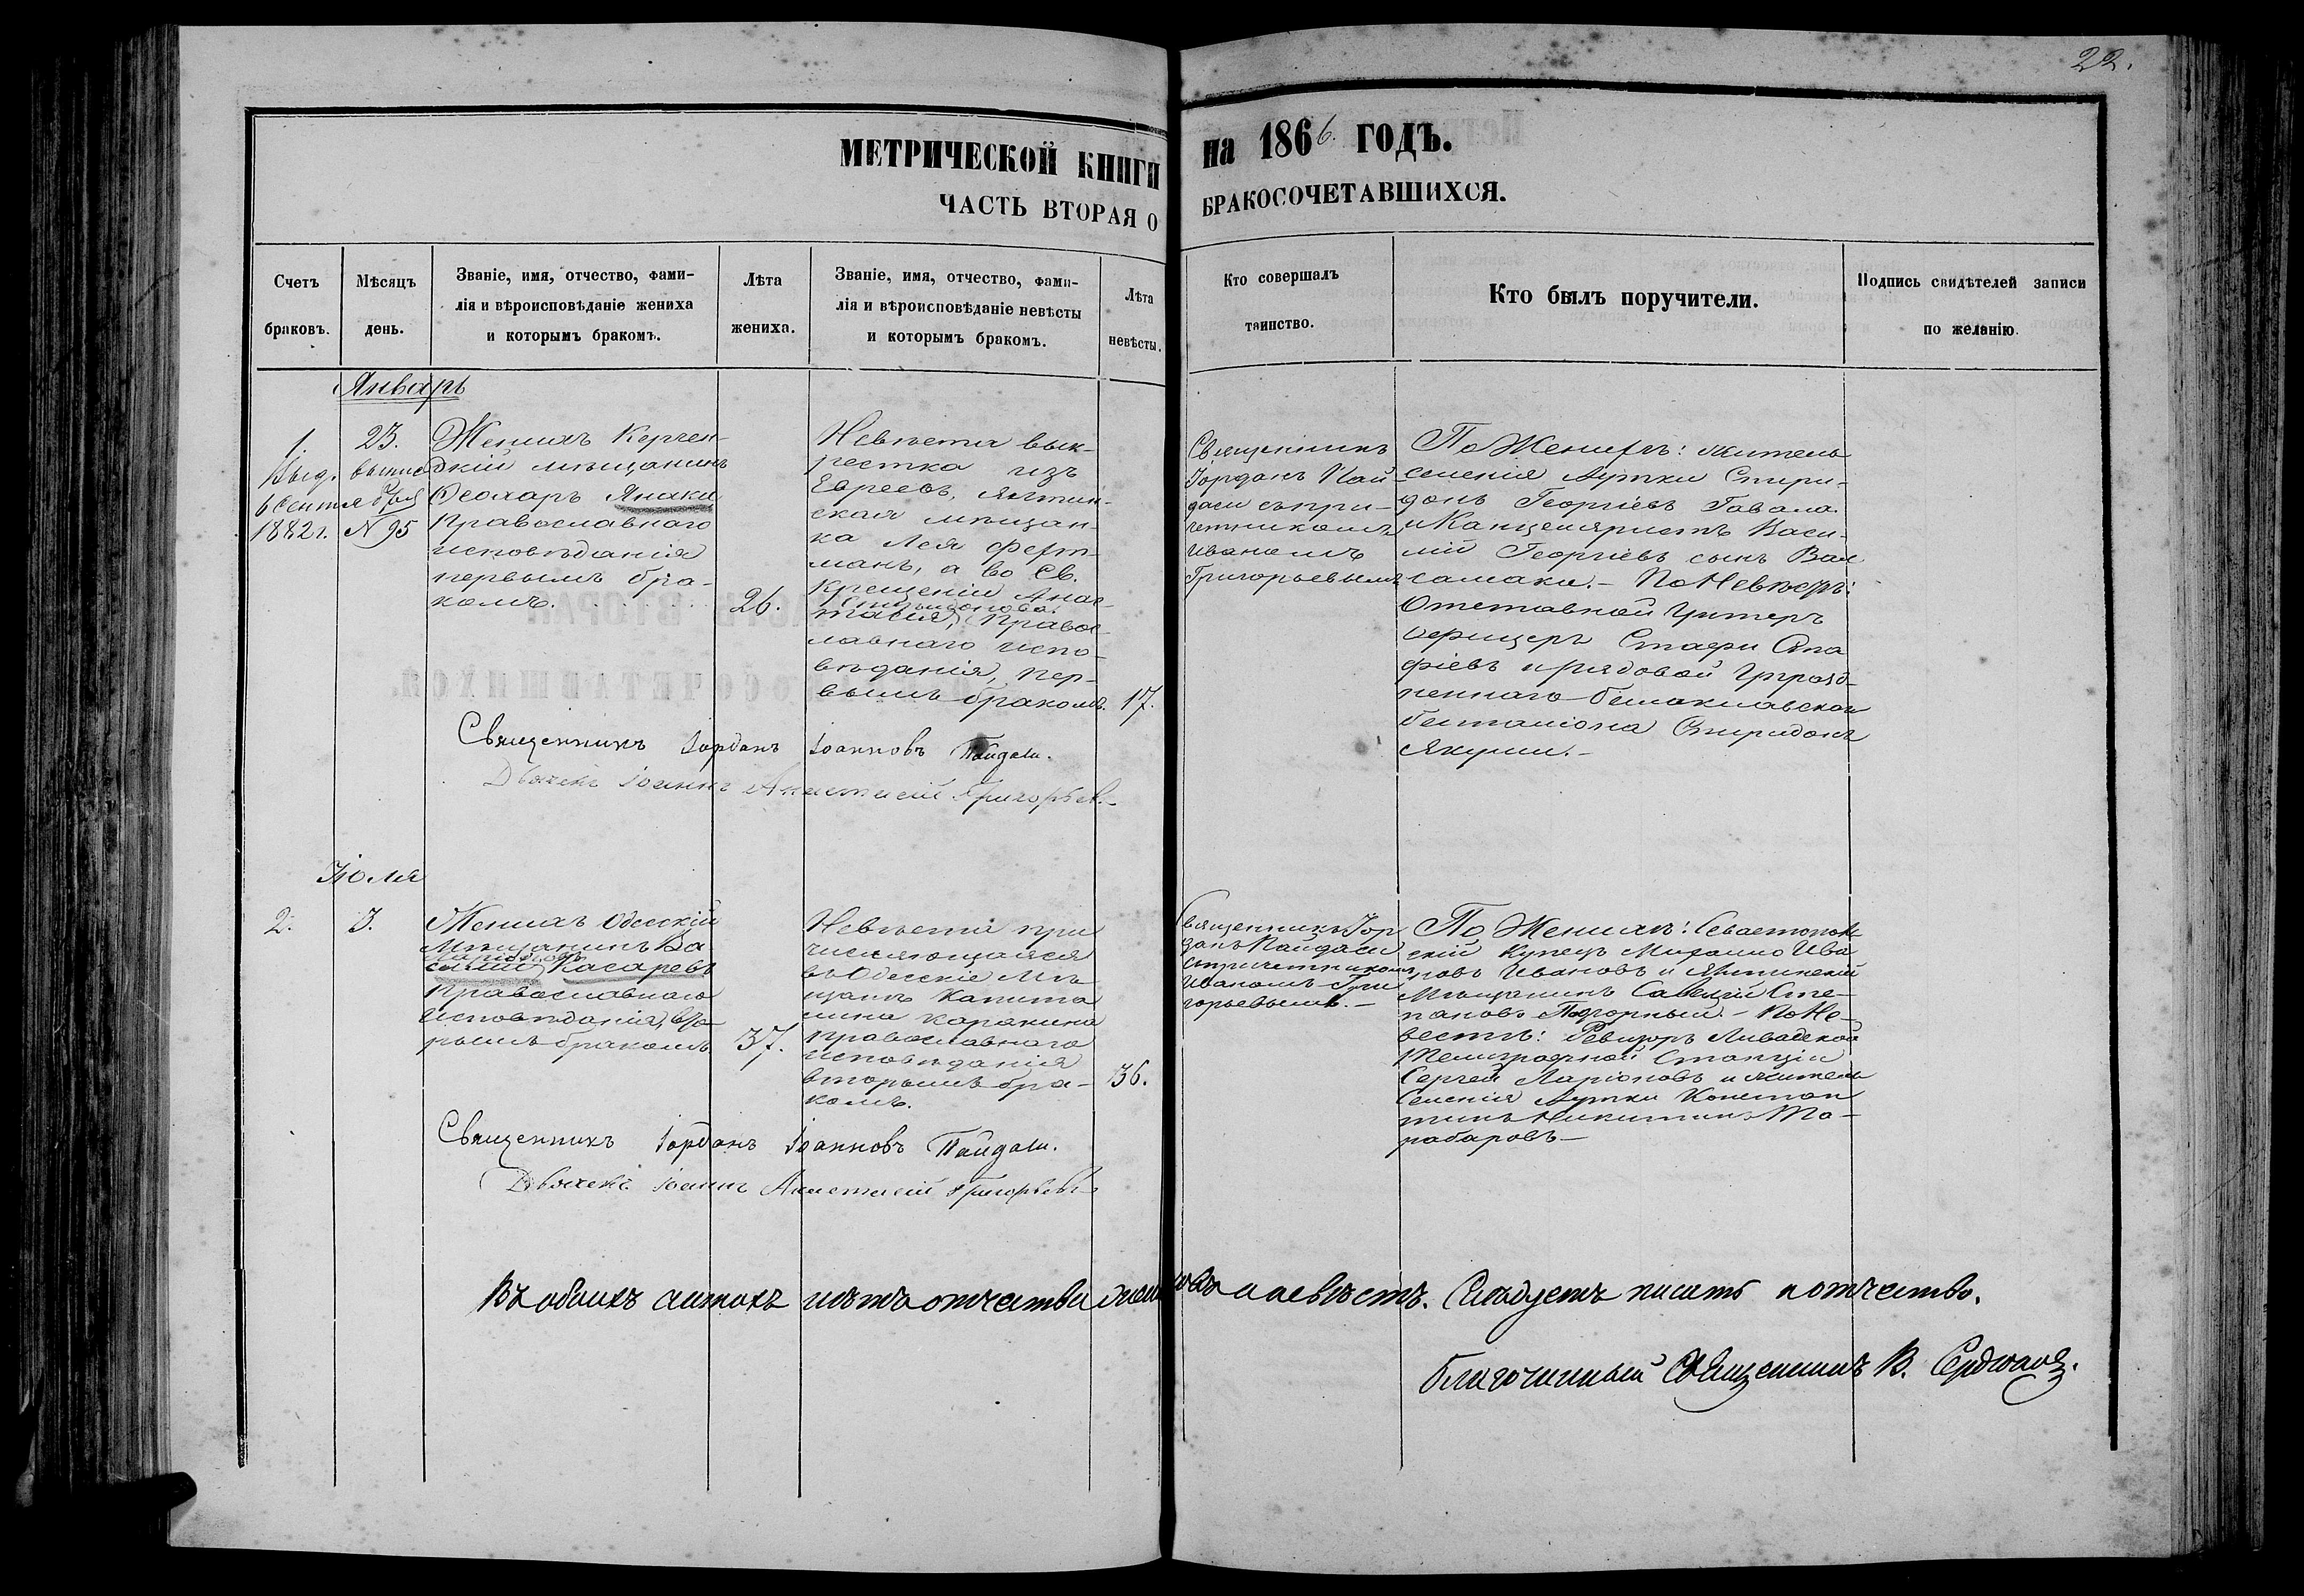 22.
МЕТРИЧЕСКОЙ КНИГИ на 1866. ГОДЪ.
ЧАСТЬ ВТОРАЯ О БРАКОСОЧЕТАВШИХСЯ.
Счетъ
браковъ.
Мѣсяцъ
день.
Званіе, имя, отчество, фами-
лія и вѣроисповѣданіе жениха
и которымъ бракомъ.
Лѣта
жениха.
Званіе, имя, отчество, фами-
лія и вѣроисповѣданіе невѣсты
и которымъ бракомъ.
Лѣта
невѣсты.
Кто совершалъ
таинство.
Кто былъ поручители.
Подпись свидѣтелей записи
по желанію.
Январь
1.
23.
Выд. выпис
6 Сентября
1882 г. N 95
Женихъ Керчен-
скій мѣщанинъ
Ѳеохаръ Янаки
Православнаго
исповѣданія
первымъ бра-
комъ.
26.
Невѣста вык-
рестка изъ
Евреевъ, Ялтин-
ская мѣщан-
ка Лея Ферт-
манъ, а во Св.
Крещеніи Анас-
Спиридонова
тасія, Правос-
лавнаго испо-
вѣданія, пер-
вымъ бракомъ.
17.
Священникъ
Іорданъ Пай
даси съ при-
четникомъ
Иваномъ
Григорьевымъ
По Женихѣ: житель
селенія Аутки Спири-
донъ Георгіевъ Гавала
и Канцеляристъ Васи-
лій Георгіевъ сынъ Вал
самаки. – По Невѣстѣ:
Отставной Унтеръ
офицеръ Стафи Ста
фіевъ и рядовой Упразд-
неннаго Балаклавскаго
баталіона Спиридонъ
Якуми. –
Священникъ Іорданъ Іоанновъ Пайдаси.
Дьячекъ Іоаннъ Анастасій Григорьевъ
Іюля
2.
3.
Женихъ Одесскій
Мѣщанинъ Ва
Ларіоновъ
силій Касаревъ
Православнаго
Исповѣданія, вто-
рымъ бракомъ
37.
Невѣста при
числяющаяся
въ Одесскіе Мѣ
щане Капито
лина Каракина
православнаго
исповѣданія
вторымъ бра-
комъ.
36.
Священникъ Іор
данъ Пайдаси
съ причетникомъ
Иваномъ Гри
горьевымъ. –
По Женихѣ: Севастополь
скій Купецъ Михаило Ива
новъ Ивановъ и Ялтинскій
Мѣщанинъ Савелій Сте-
пановъ Подгорный. – По Не-
вестѣ: Ревизоръ Ливадской
Телеграфной Станціи
Сергей Ларіоновъ и житель
Селенія Аутки Констан
тинъ Никитинъ Та-
рабаровъ –
Священникъ Іорданъ Іоанновъ Пайдаси.
Дьячекъ Іоаннъ Анастасій Григорьевъ
Въ обоихъ актахъ нѣтъ отчества жениховъ и невѣстъ. Слѣдуетъ писать и отчество.
Благочинный Священникъ В.